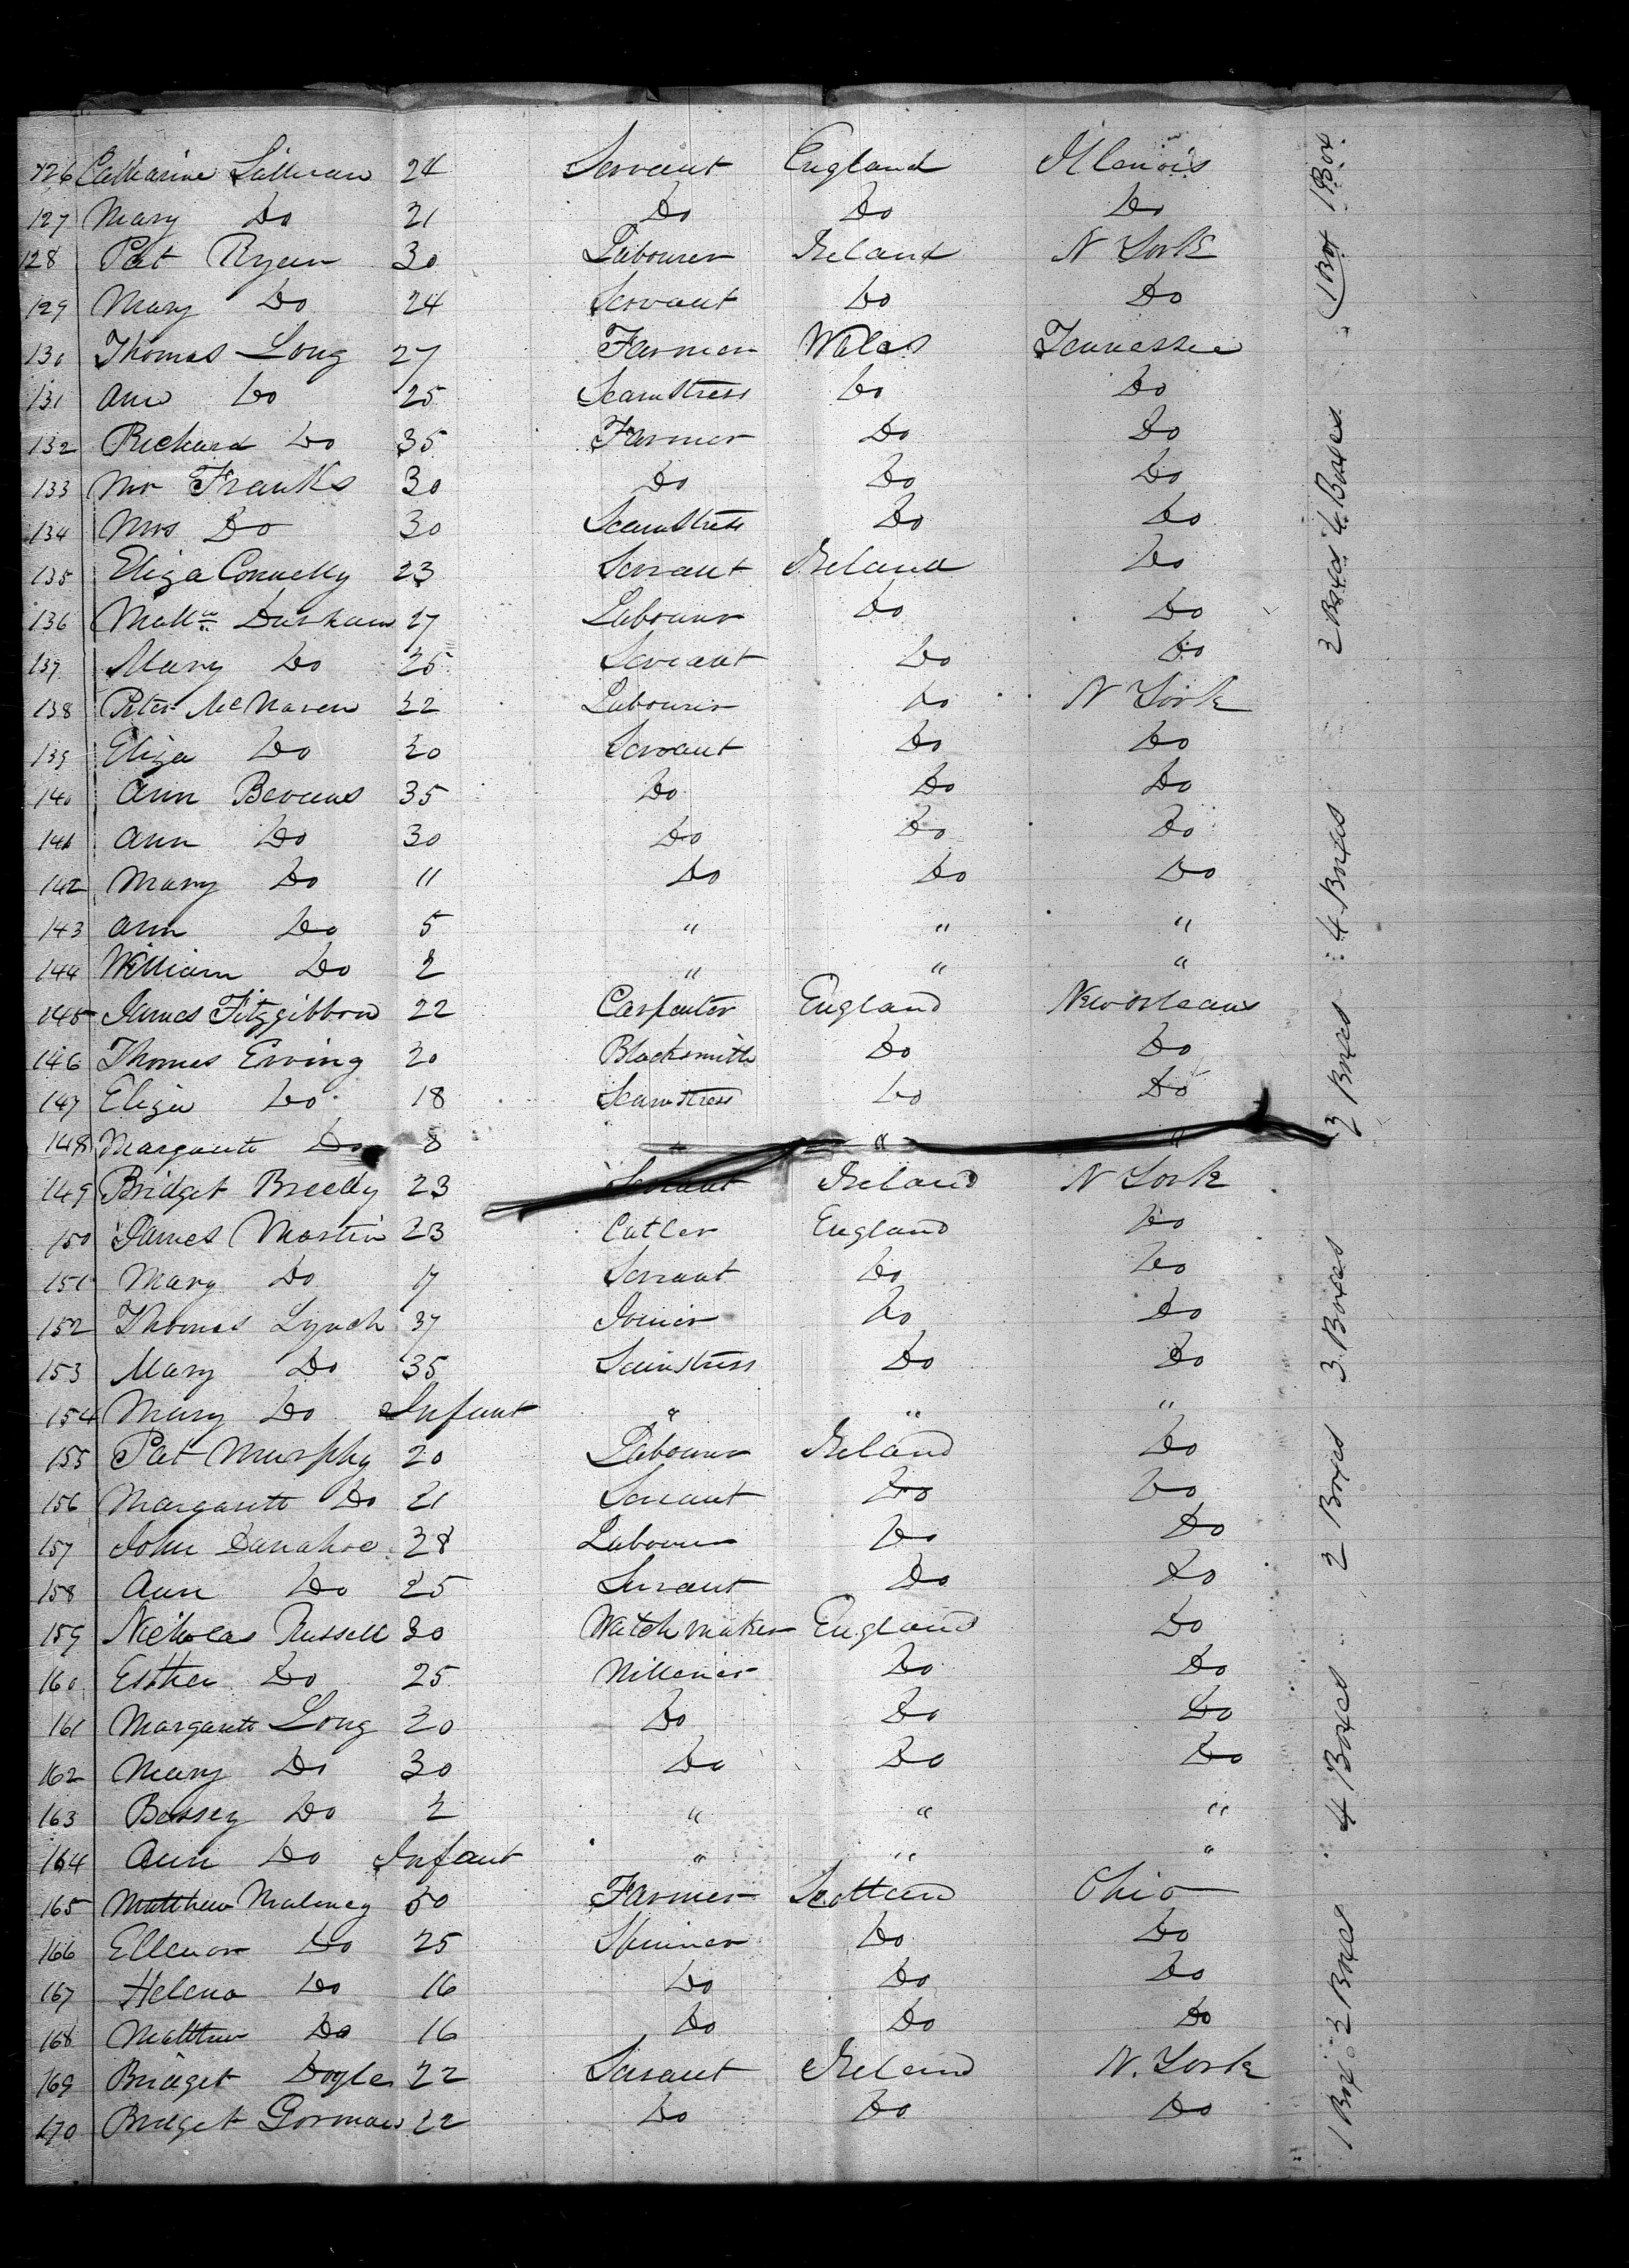 126 Catharine Sullivan 24 Servant England Illenois
127 Mary Do 21 Do Do Do
128 Pat Ryan 30 Labourer Ireland N York
129 Mary Do 24 Servant Do Do
130 Thomas Long 27 Farmer Wales Tennessee
131 Ann Do 25 Seamstress Do Do
132 Richard Do 35 Farmer Do Do
133 Mr Franks 30 Do Do Do
134 Mrs Do 30 Seamstress Do Do
135 Eliza Connelly 23 Servant Ireland Do
136 Durham 27 Labourer Do Do
137 Mary Do 25 Servant Do Do
138 Peter McNaven 22 Labourer Do N York
139 Eliza Do 20 Servant Do Do
140 Ann Bevens 35 Do Do Do
141 Ann Do 30 Do Do Do
142 Mary Do 11 Do Do Do
143 Ann Do 5 " " "
144 William Do 2 " " "
145 James Fitzgibbon 22 Carpenter England New Orleans
146 Thomas Erving 20 Blacksmith Do Do
147 Eliza Do 18 Seamstress Do Do
148 Margarett Do 8 " " "
149 Bridget Breedy 23 Servant Ireland N York
150 James Martin 23 Cutler England Do
151 Mary Do 17 Servant Do Do
152 Thomas Lynch 37 Joiner Do Do
153 Mary Do 35 Seamstress Do Do
154 Mary Do Infant " " "
155 Pat Murphy 20 Labourer Ireland Do
156 Margarett Do 21 Servant Do Do
157 John Danahoe 28 Labourer Do Do
158 Ann Do 25 Servant Do Do
159 Nicholas Russell 30 Watch maker England Do
160 Esther Do 25 Millener Do Do
161 Margarett Long 20 Do Do Do
162 Mary Do 30 Do Do Do
163 Bessey Do 2 " " "
164 Ann Do Infant " " "
165 Matthew Maloney 50 Farmer Scotland Ohio
166 Ellenor Do 25 Spinner Do Do
167 Helena Do 16 Do Do Do
168 Matthew Do 16 Do Do Do
169 Bridget Doyle 22 Servant Ireland N. York
170 Bridget Gorman 22 Do Do Do
1 Box
1 Box
4 Boxes
2 Boxes
4 Boxes
2 Boxes
3 Boxes
2 Boxes
4 Boxes
2 Boxes
1 Box